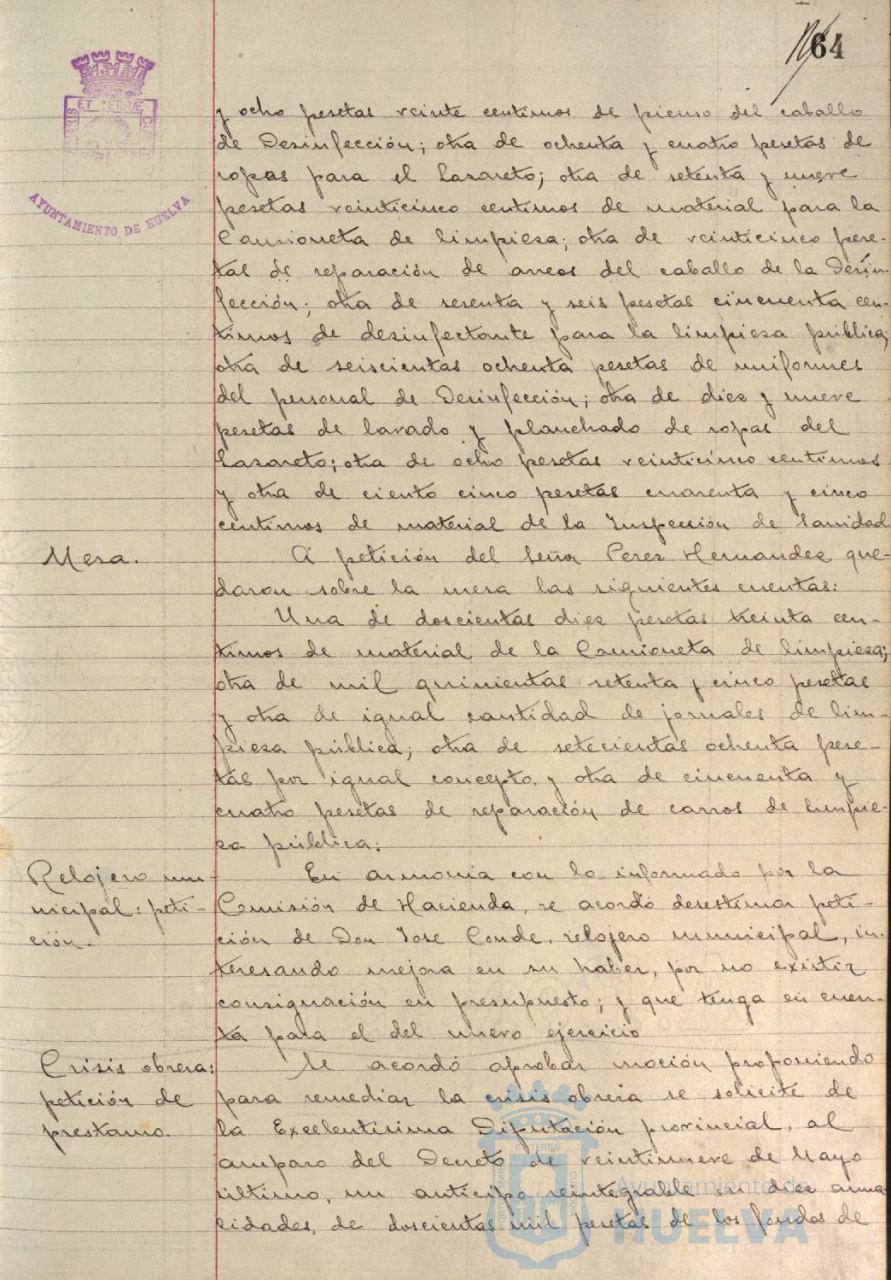 64
AYUNTAMIENTO DE HUELVA
y ocho pesetas veinte centimos de pienso del caballo
de Desinfección; otra de ochenta y cuatro pesetas de
ropas para el Lazareto; otra de setenta y nueve
pesetas veinticinco centimos de material para la
Camioneta de limpiesa; otra de veinticinco pese-
tas de reparación de arreos del caballo de la Desin-
fección; otra de sesenta y seis pesetas cincuenta cen-
timos de desinfectante para la limpiesa pública;
otra de seiscientas ochenta pesetas de uniformes
del personal de Desinfección; otra de diez y nueve
pesetas de lavado y planchado de ropas del
Lazareto; otra de ocho pesetas veinticinco centimos
y otra de ciento cinco pesetas cuarenta y cinco
centimos de material de la Inspección de Sanidad
Mesa.
A petición del Señor Perez Hernandez que-
daron sobre la mesa las siguientes cuentas:
Una de doscientas diez pesetas treinta cen-
timos de material de la Camioneta de limpiesa;
otra de mil quinientas setenta y cinco pesetas
y otra de igual cantidad de jornales de lim-
piesa pública; otra de setecientas ochenta pese-
tas por igual concepto, y otra de cincuenta y
cuatro pesetas de reparación de carros de limpie-
sa pública.
Relojero mu-
nicipal: peti-
ción.
En armonia con lo informado por la
Comisión de Hacienda, se acordó desestimar peti-
ción de Don Jose Conde, relojero municipal, in-
teresando mejora en su haber, por no existir
consignación en presupuesto; y que tenga en cuen-
ta para el del nuevo ejercicio
Crisis obrera:
petición de
prestamo.
Se acordó aprobar moción proponiendo
para remediar la crisis obrera se solicite de
la Excelentisima Diputación provincial, al
amparo del Decreto de veintinueve de Mayo
último, un anticipo reintegrable en diez anua-
lidades, de doscientas mil pesetas de los fondos de
Ayuntamiento de
HUELVA